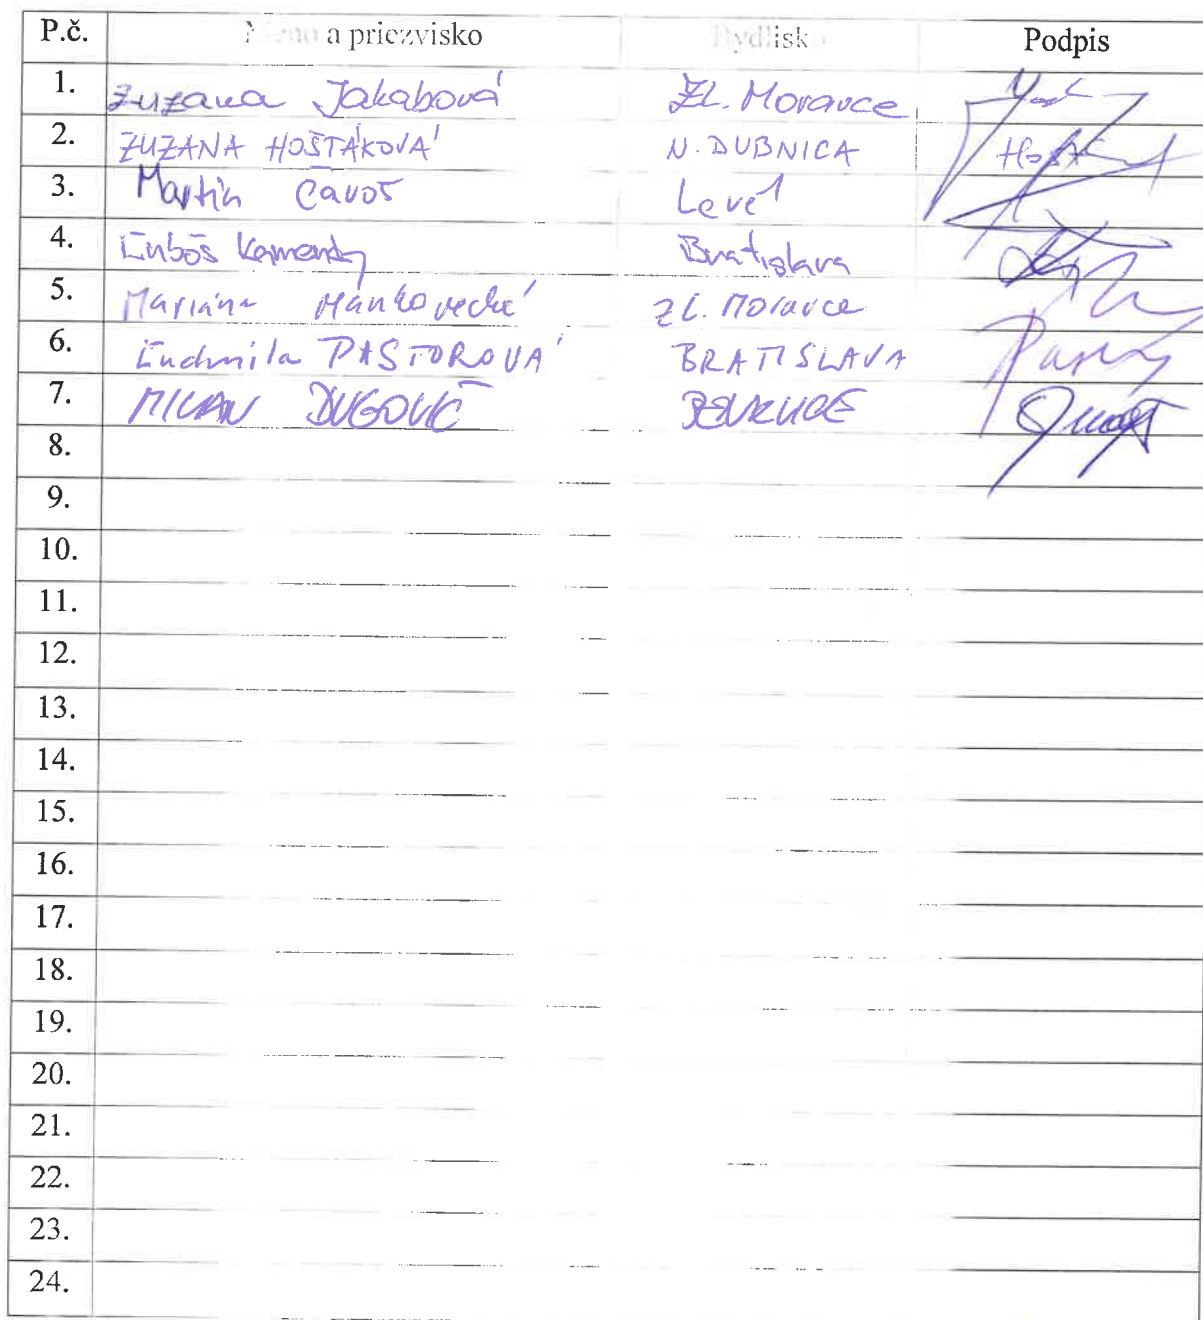 P.č. Meno a priezvisko Bydlisko Podpis
1. Zuzana Jakabová Zl. Moravce
2. ZUZANA HOŠTÁKOVÁ N. DUBNICA
3. Martin Čavoš
4. Ľuboš Bratislava
5. Zl. Moravce
6. Ľudmila PASTOROVÁ BRATISLAVA
7. MILAN DUGOVIČ
8.
9.
10.
11.
12.
13.
14.
15.
16.
17.
18.
19.
20.
21.
22.
23.
24.